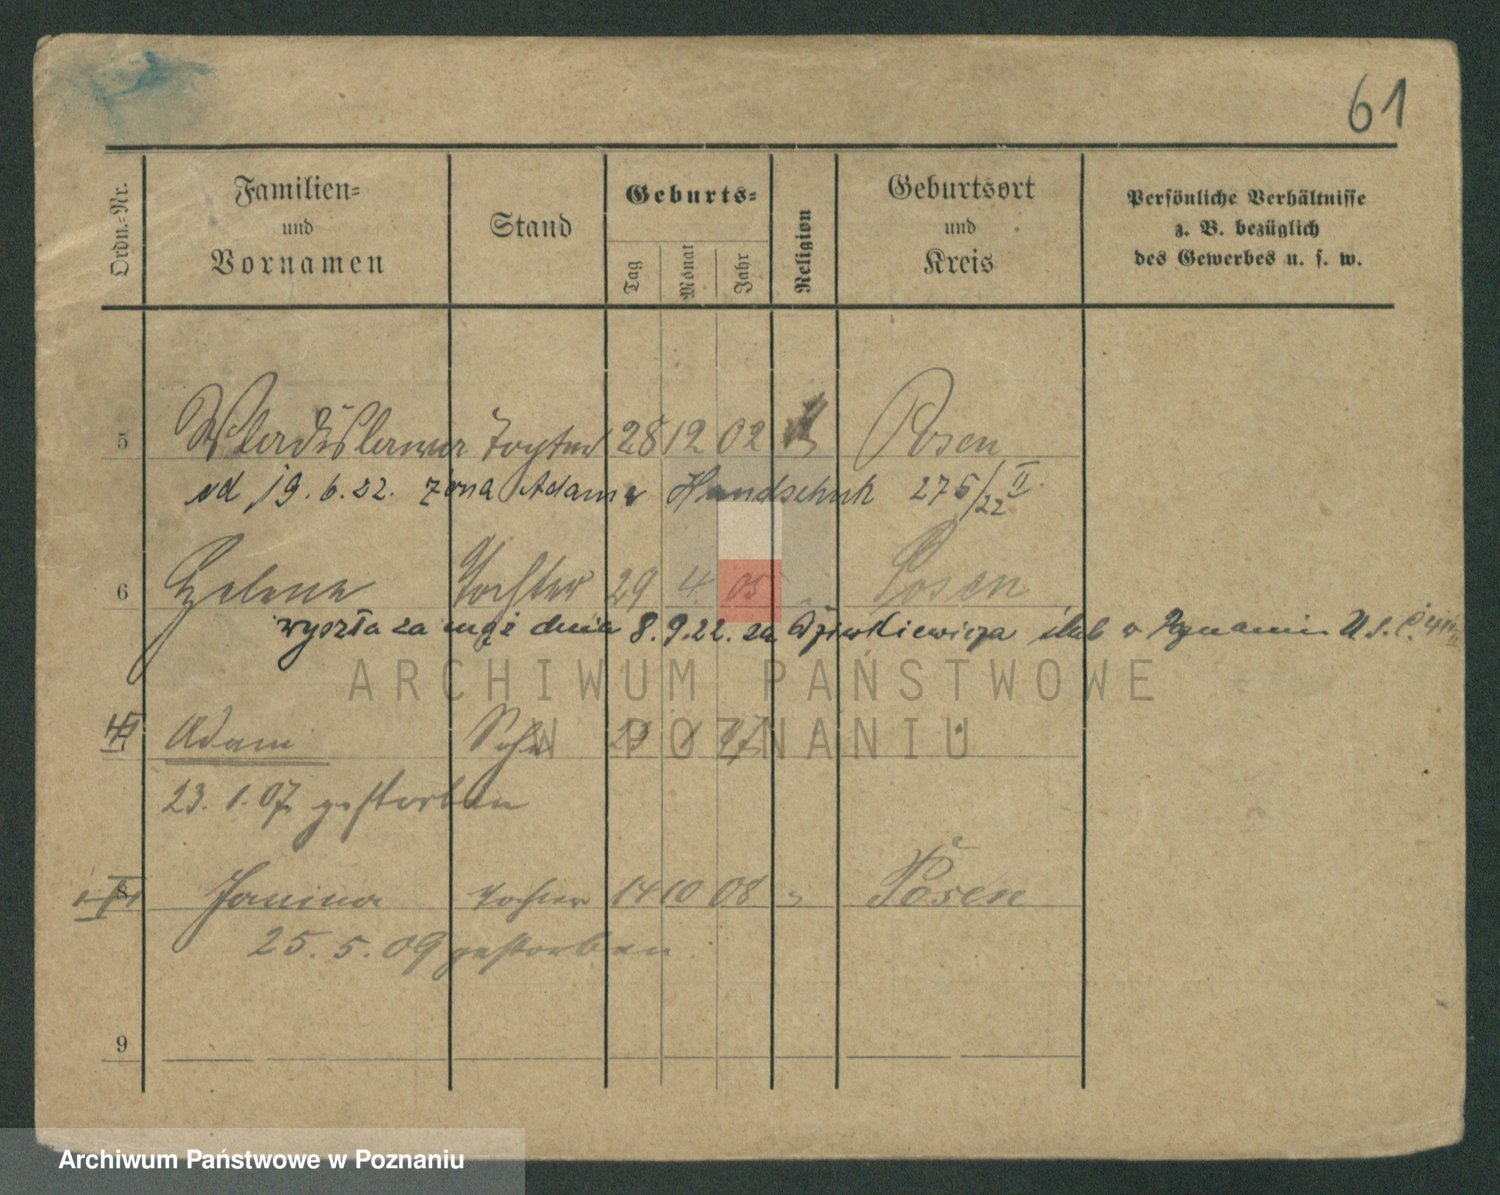 61
Ordn.-Nr.
Familien-
und
Vornamen
Stand
Geburts-
Tag
Monat
Jahr
Religion
Geburtsort
und
Kreis
Persönliche Verhältnisse
z. B. bezüglich
des Gewerbes u. s. w.
5 Wladislawa Tochter 28 12 02 Posen
od 19.6.22. żona Adama Handschuh 275/22 II.
6 Helena Tochter 29 4. 05 Posen
wyszła za mąż dnia 8.9.22. za ślub w Poznaniu U.S.C.
Adam Sohn
23.1.07 gestorben
8 Janina Tochter 14 10 08 Posen
25.5.09 gestorben.
9
ARCHIWUM PAŃSTWOWE
W POZNANIU
Archiwum Państwowe w Poznaniu